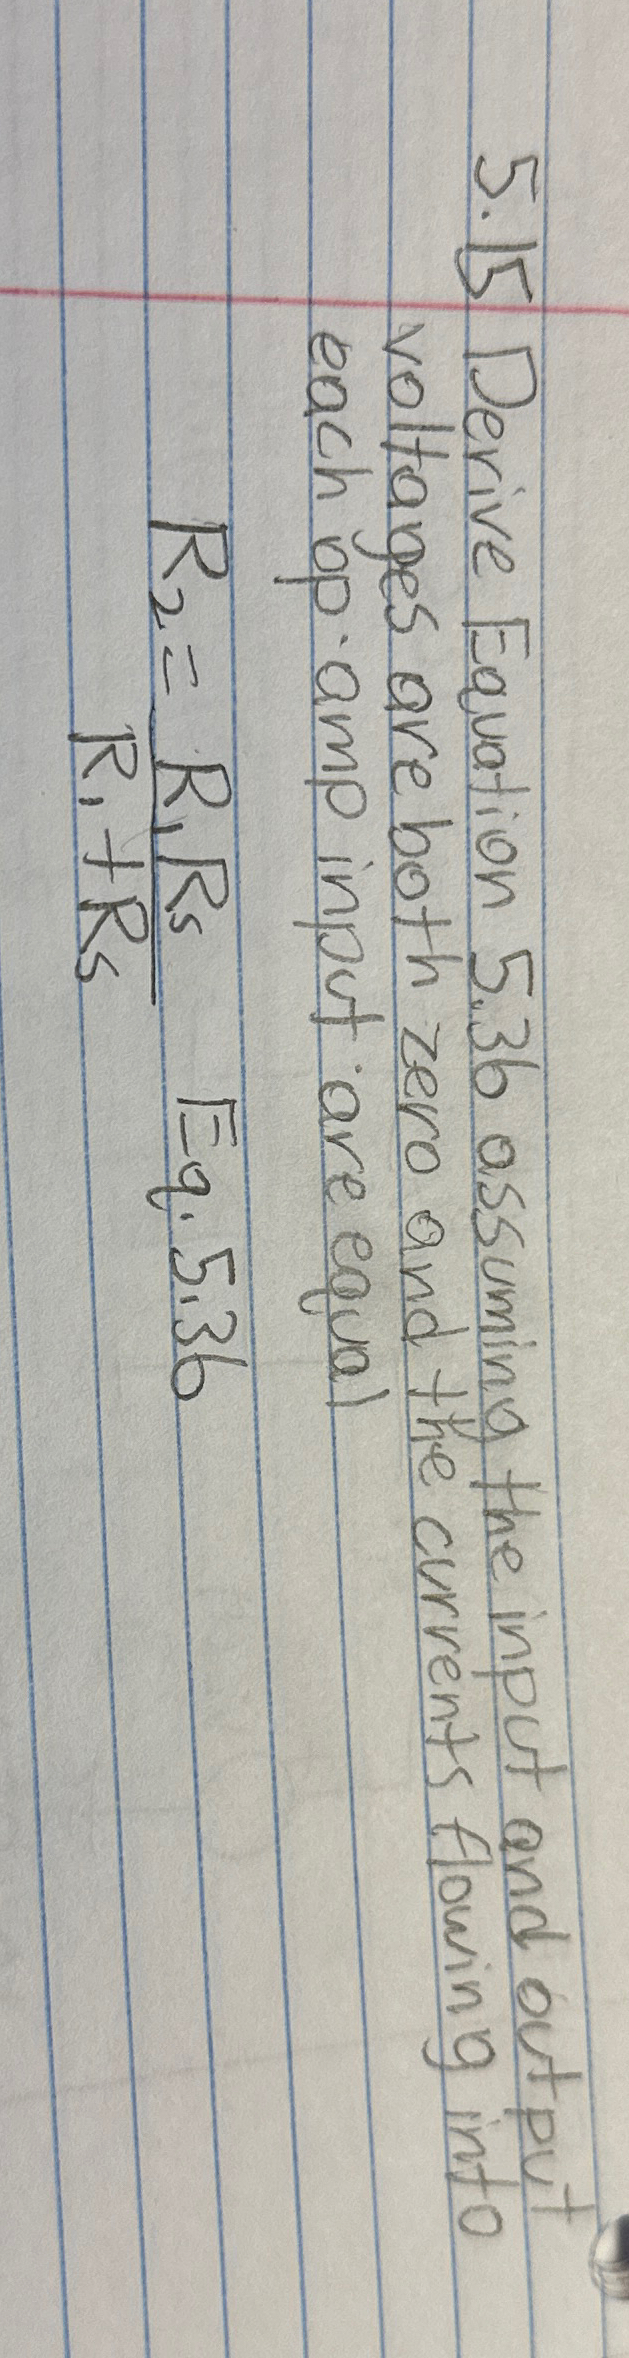 5.15 Derive Equation 5.36 assuming the input and output
voltages are both zero and the currents flowing into
each op-amp input are equal
R₂ = R₁Rs Eq. 5.36
R₁ + Rs